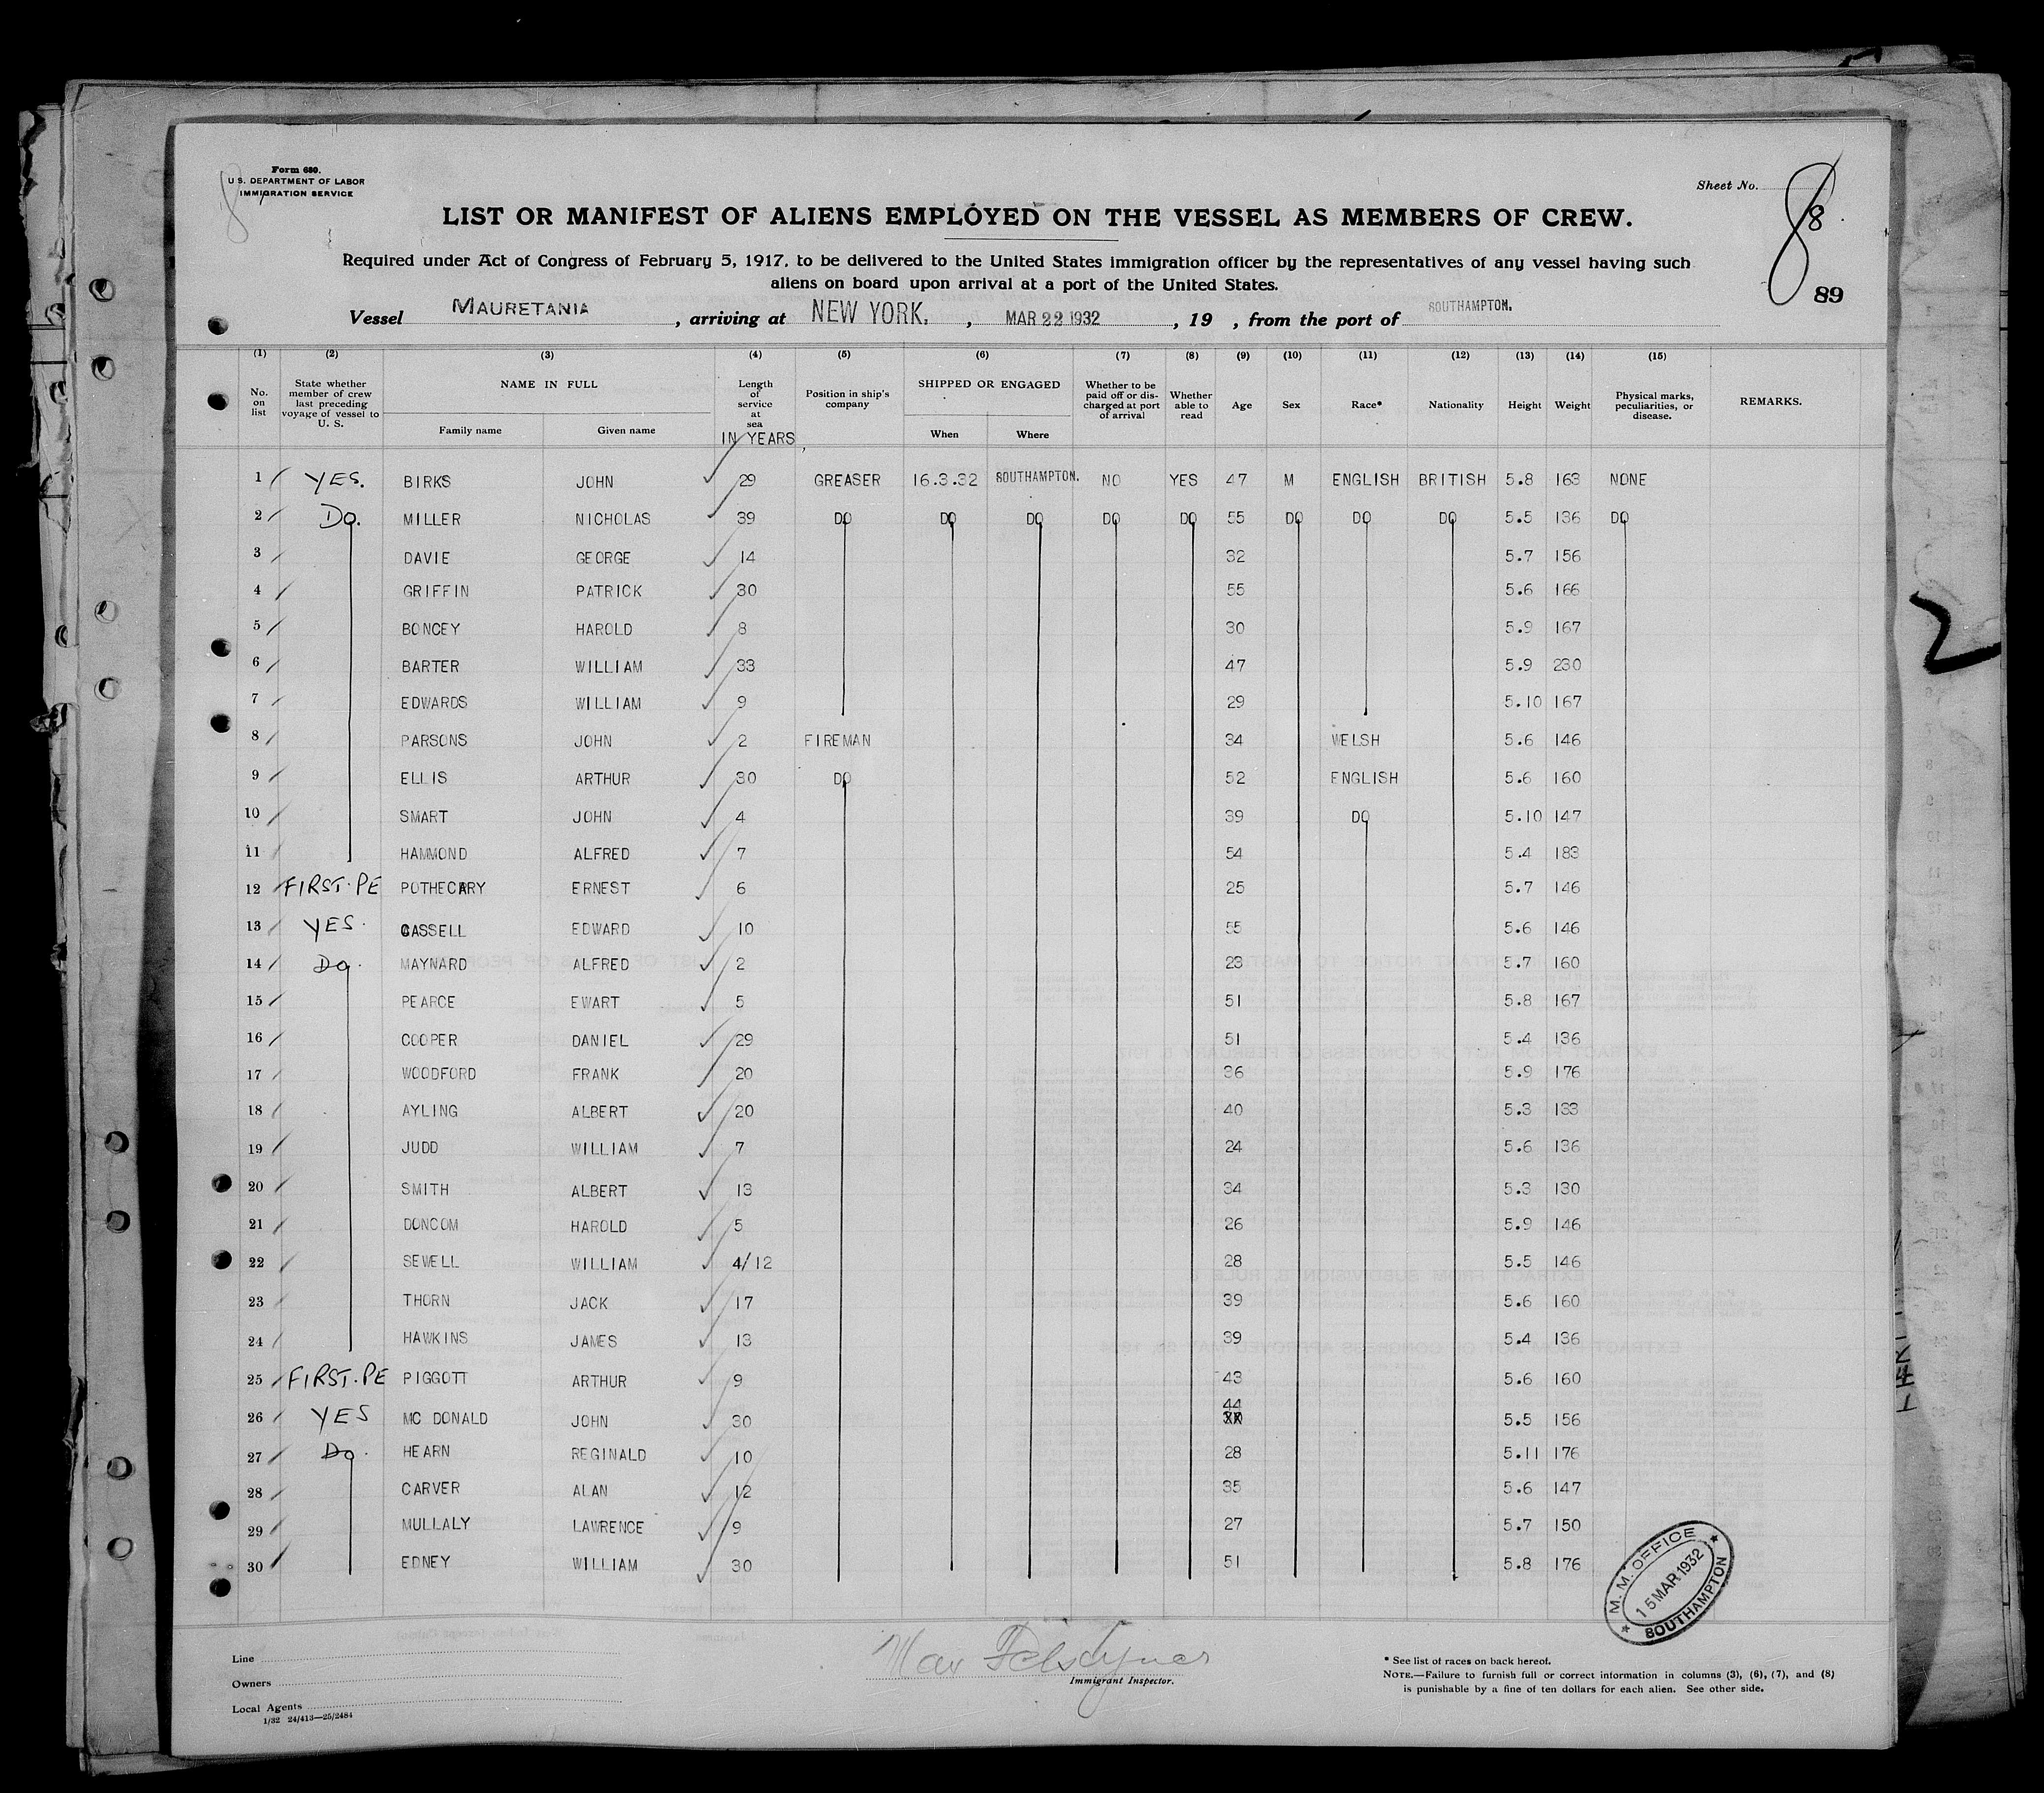 Form 680.
U. S. DEPARTMENT OF LABOR
IMMIGRATION SERVICE
Sheet No. 8
8
89
LIST OR MANIFEST OF ALIENS EMPLOYED ON THE VESSEL AS MEMBERS OF CREW.
Required under Act of Congress of February 5, 1917, to be delivered to the United States immigration officer by the representatives of any vessel having such
aliens on board upon arrival at a port of the United States.
Vessel MAURETANIA, arriving at NEW YORK., MAR 22 1932, 19 , from the port of SOUTHAMPTON.
(1) (2) (3) (4) (5) (6) (7) (8) (9) (10) (11) (12) (13) (14) (15)
No. on list State whether member of crew last preceding voyage of vessel to U. S. NAME IN FULL Family name Given name Length of service at sea IN YEARS Position in ship's company SHIPPED OR ENGAGED When Where Whether to be paid off or discharged at port of arrival Whether able to read Age Sex Race* Nationality Height Weight Physical marks, peculiarities, or disease. REMARKS.
1 YES. BIRKS JOHN 29 GREASER 16.3.32 SOUTHAMPTON. NO YES 47 M ENGLISH BRITISH 5.8 163 NONE
2 Do. MILLER NICHOLAS 39 DO DO DO DO DO 55 DO DO DO 5.5 136 DO
3 DAVIE GEORGE 14 32 5.7 156
4 GRIFFIN PATRICK 30 55 5.6 166
5 BONCEY HAROLD 8 30 5.9 167
6 BARTER WILLIAM 33 47 5.9 230
7 EDWARDS WILLIAM 9 29 5.10 167
8 PARSONS JOHN 2 FIREMAN 34 WELSH 5.6 146
9 ELLIS ARTHUR 30 DO 52 ENGLISH 5.6 160
10 SMART JOHN 4 39 DO 5.10 147
11 HAMMOND ALFRED 7 54 5.4 183
12 FIRST.PE POTHECARY ERNEST 6 25 5.7 146
13 YES. CASSELL EDWARD 10 55 5.6 146
14 Do. MAYNARD ALFRED 2 23 5.7 160
15 PEARCE EWART 5 51 5.8 167
16 COOPER DANIEL 29 51 5.4 136
17 WOODFORD FRANK 20 36 5.9 176
18 AYLING ALBERT 20 40 5.3 133
19 JUDD WILLIAM 7 24 5.6 136
20 SMITH ALBERT 13 34 5.3 130
21 DONCOM HAROLD 5 26 5.9 146
22 SEWELL WILLIAM 4/12 28 5.5 146
23 THORN JACK 17 39 5.6 160
24 HAWKINS JAMES 13 39 5.4 136
25 FIRST.PE PIGGOTT ARTHUR 9 43 5.6 160
26 YES MC DONALD JOHN 30 44 5.5 156
27 Do. HEARN REGINALD 10 28 5.11 176
28 CARVER ALAN 12 35 5.6 147
29 MULLALY LAWRENCE 9 27 5.7 150
30 EDNEY WILLIAM 30 51 5.8 176
M. M. OFFICE
15 MAR 1932
SOUTHAMPTON
Line
Owners
Local Agents
1/32 24/413—25/2484
Immigrant Inspector.
* See list of races on back hereof.
NOTE.—Failure to furnish full or correct information in columns (3), (6), (7), and (8)
is punishable by a fine of ten dollars for each alien. See other side.
2